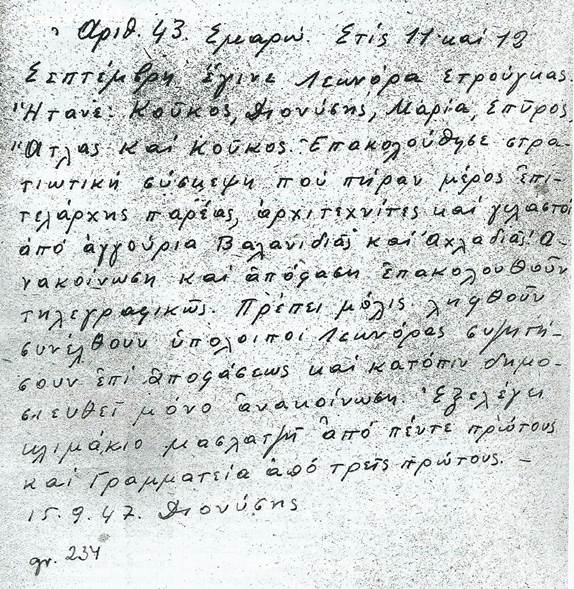 Αριθ. 43. Σμαρώ. Στίς 11 καί 12
Σεπτέμβρη ἔγινε Λεωνόρα Στρούγκας.
Ἤτανε: Κοῦκος, Διονύσης, Μαρία, Σπῦρος,
Ἄτλας καί Κοῦκος. Ἐπακολούθησε στρα-
τιωτική σύσκεψη πού πῆραν μέρος ἐπι-
τελάρχης παρέας, ἀρχιτεχνίτες καί γελαστοί
ἀπό ἀγγούρια Βαλανιδιᾶς καί Ἀχλαδιᾶς. Ἀ-
νακοίνωση καί ἀπόφαση ἐπακολουθοῦν
τηλεγραφικῶς. Πρέπει μόλις ληφθοῦν
συνέλθουν ὑπόλοιποι Λεωνόρας συζητή-
σουν ἐπί ἀποφάσεως καί κατόπιν δημο-
σιευθεῖ μόνο ἀνακοίνωση. Ἐξελέγει
κλιμάκιο μασλατζῆ ἀπό πέντε πρώτους
καί Γραμματεία ἀπό τρεῖς πρώτους. –
15.9.47. Διονύσης
gr. 234